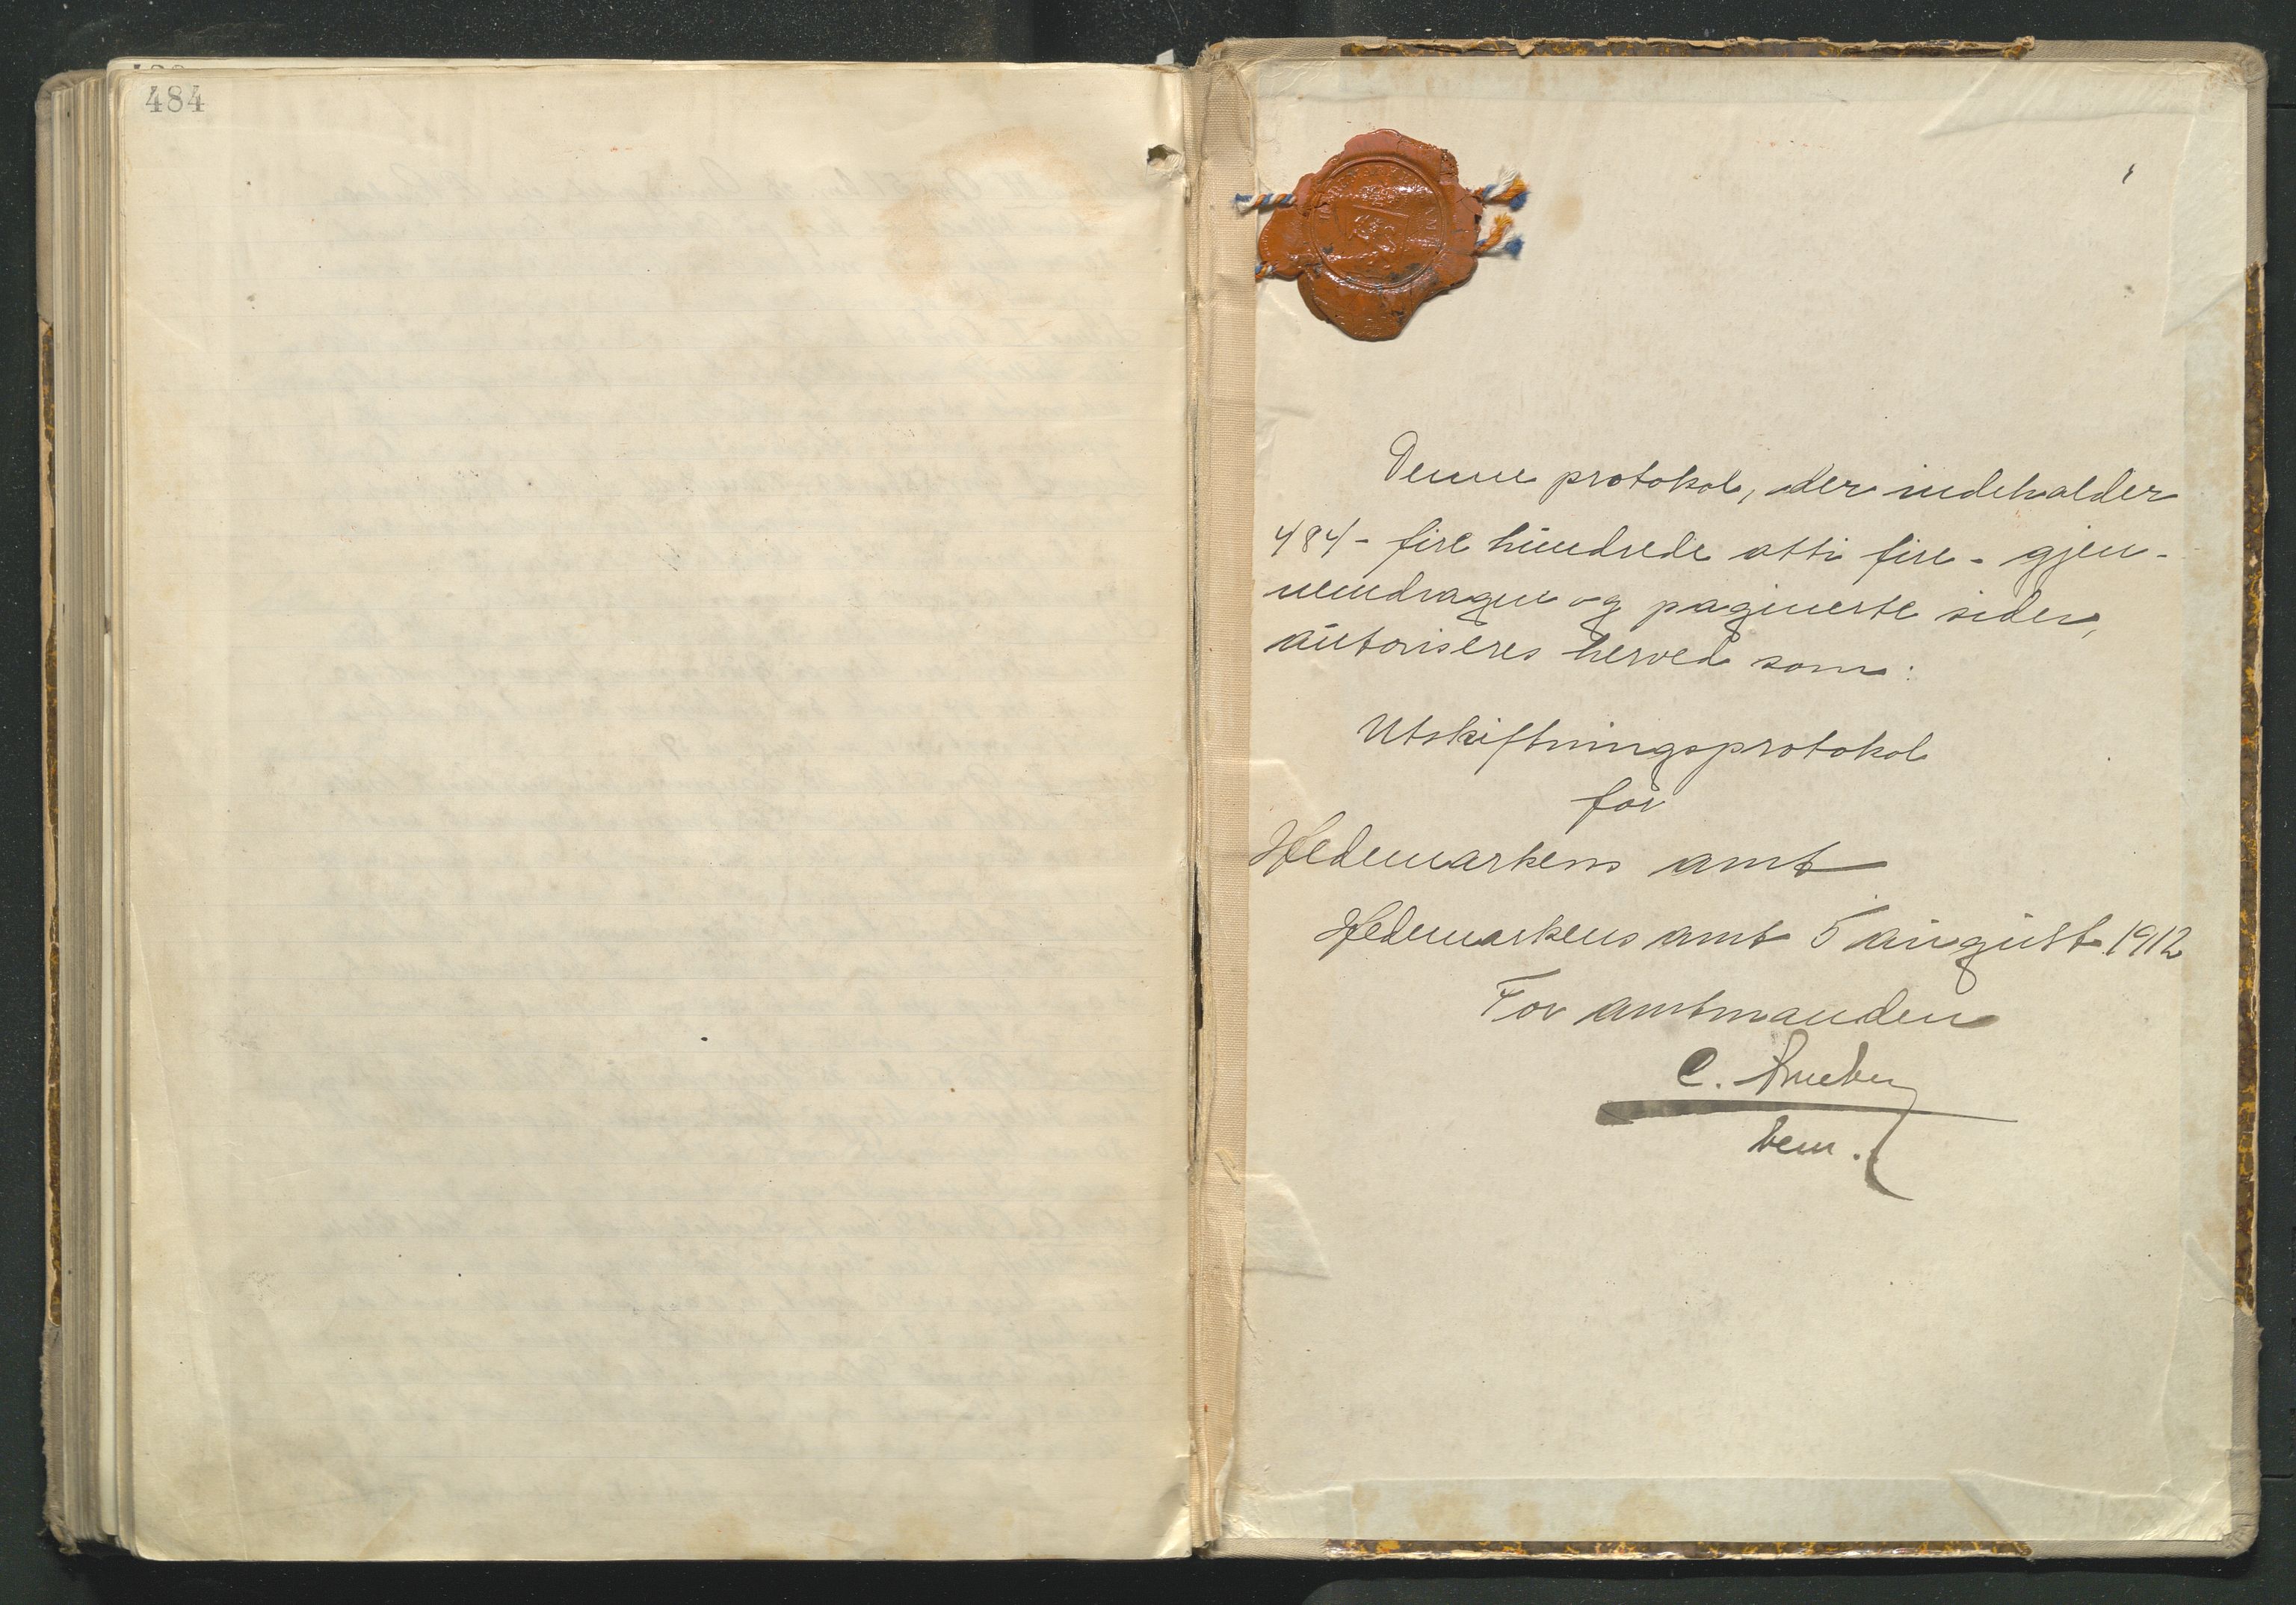 484
Denne protokol, der indeholder
484 - fire hundrede otti fire - gjen-
nemdragne og paginerte sider,
autoriseres herved som:
Utskiftningsprotokol
for
Hedemarkens amt
Hedemarkens amt 5 august 1912
For amtmanden
C.
bem.